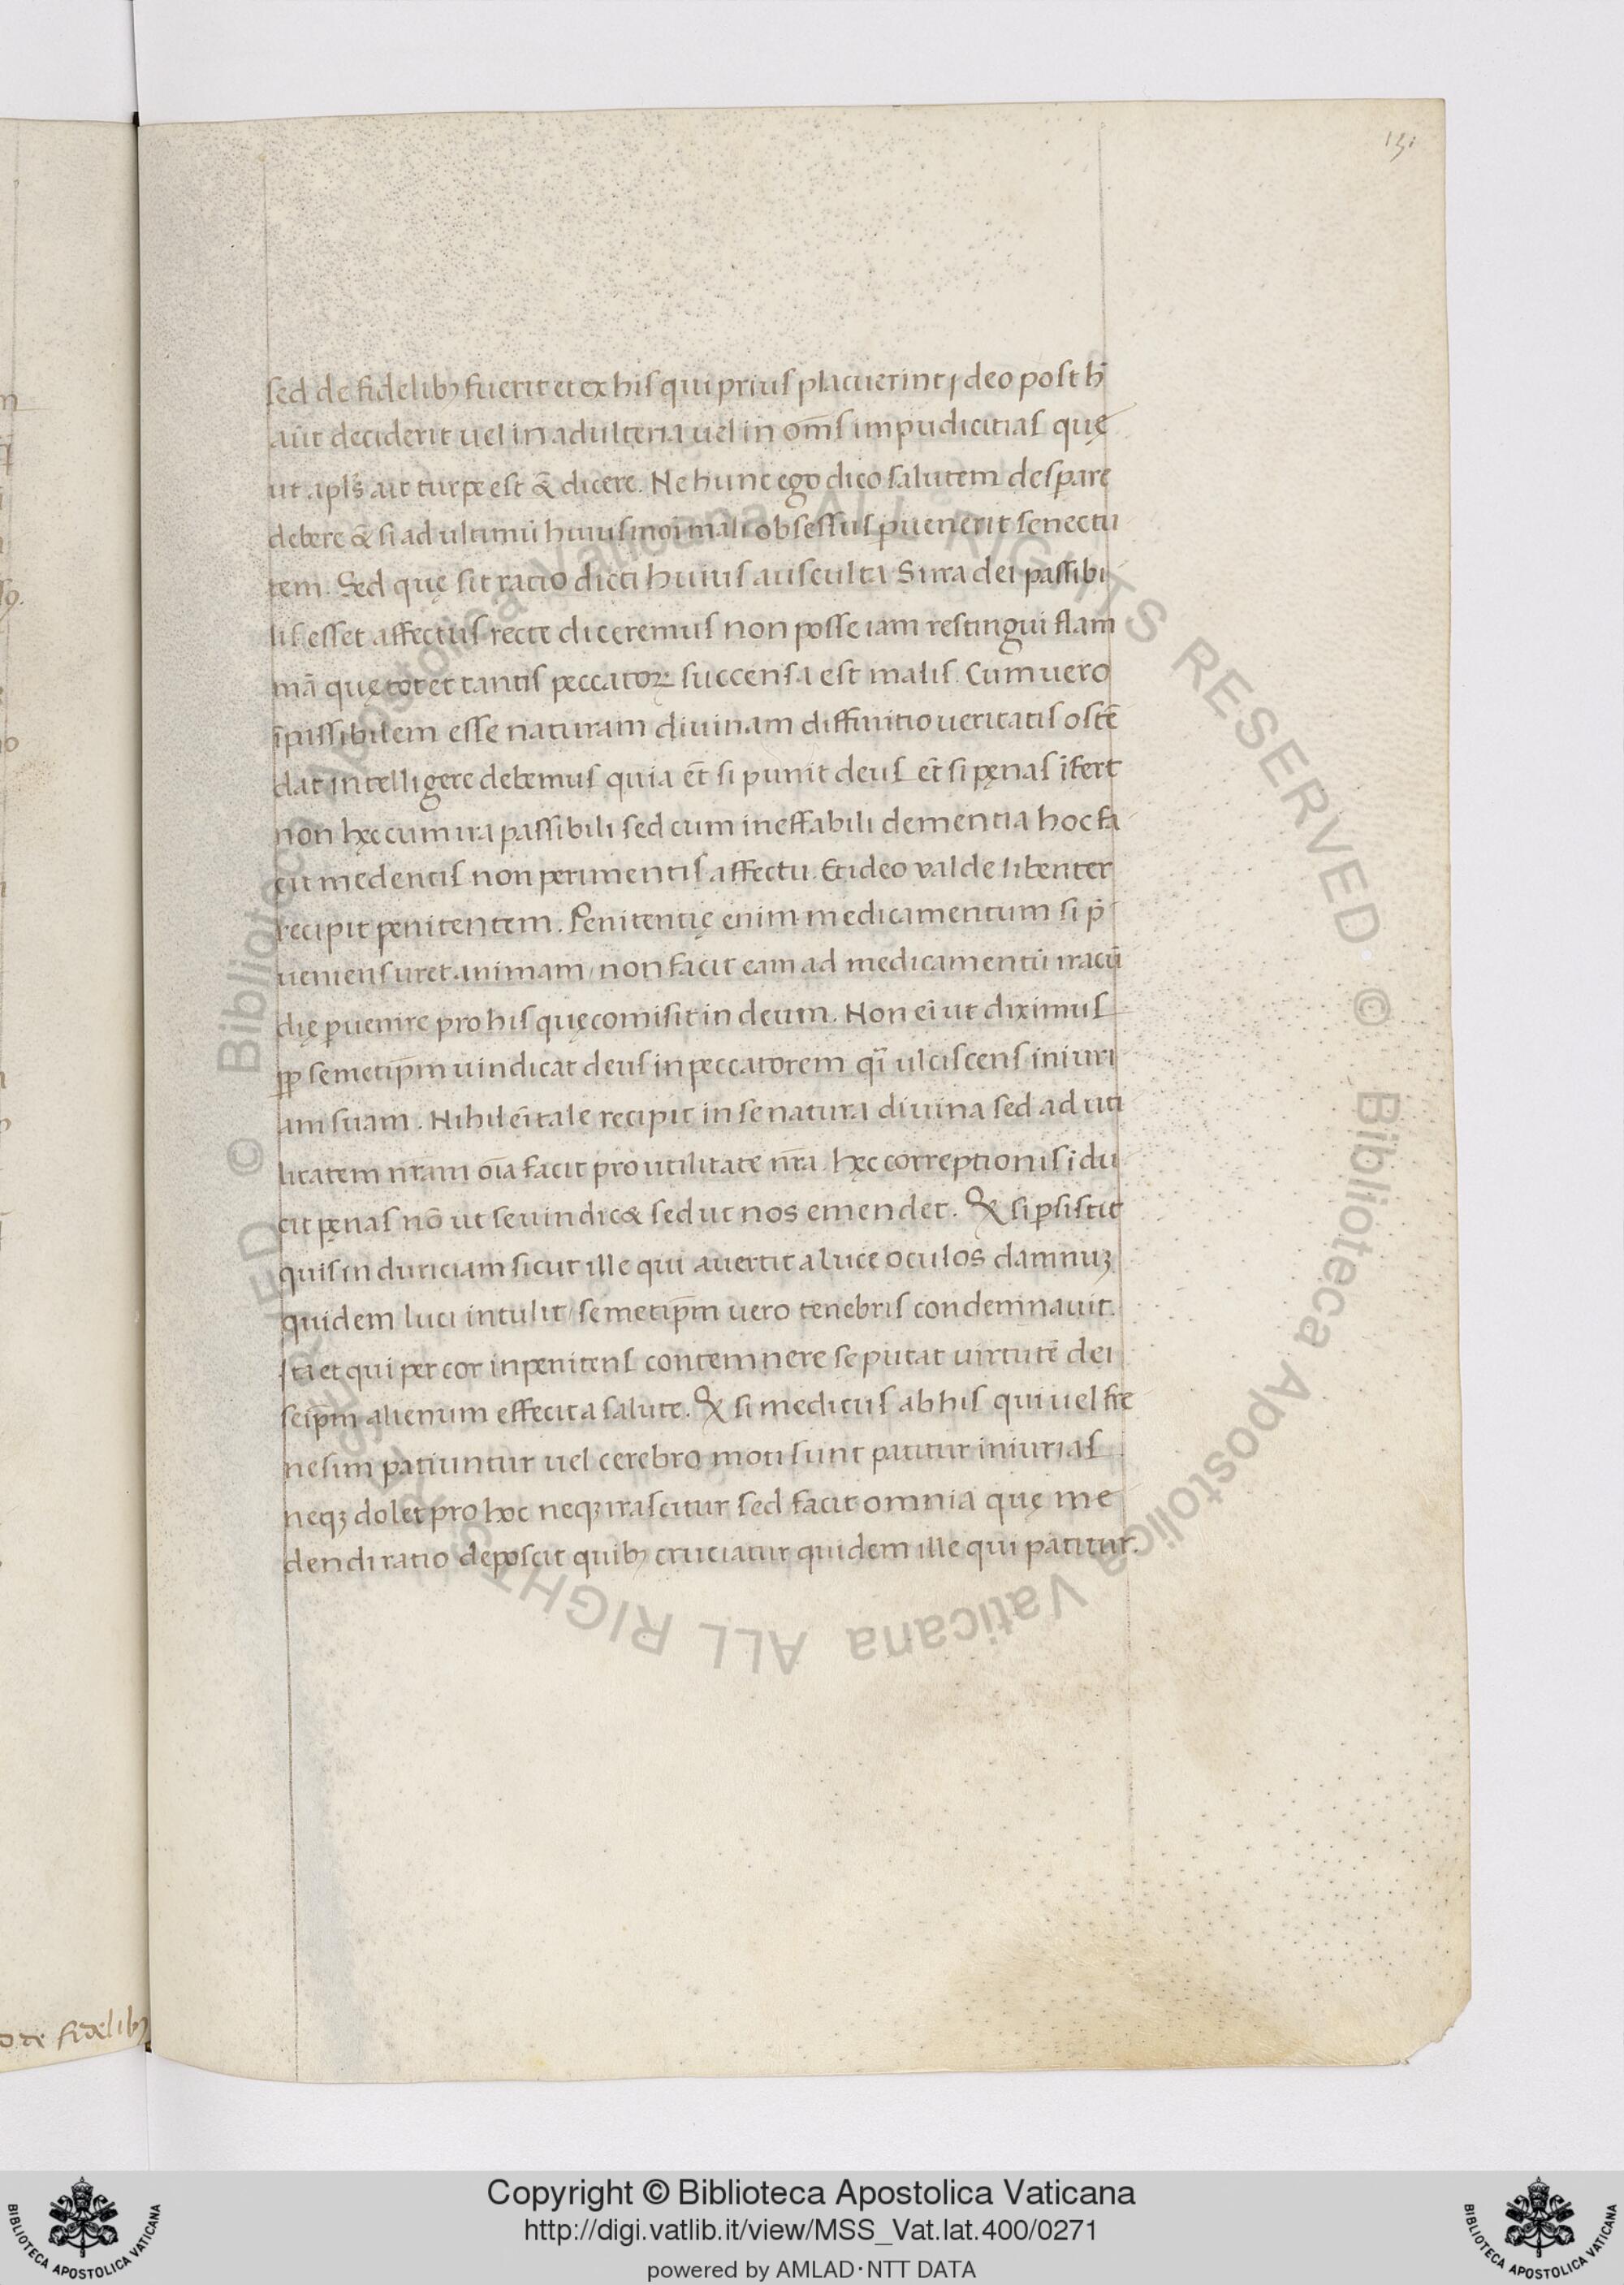 131
sed de fidelibꝫ fuerit et ex his qui prius placuerint ⁊ deo post h̄
aūt deciderit uel in adulteria uel in om̄s impudicitias quę
ut apl̄s ait turpe est & dicere. Ne hunc ego dico salutem desꝑare
debere & si ad ultimū huiusmōi mali obsessus ꝑuenerit senectu
tem. Sed quę sit ratio dicti huius ausculta Si ira dei passibi
lis esset affectus recte diceremus non posse iam restingui flam
mā quę tot et tantis peccatoꝝ succensa est malis. Cum uero
īpassibilem esse naturam diuinam diffinitio ueritatis ostē
dat intelligere debemus quia et̄ si punit deus et̄ si pęnas īfert
non hęc cum ira passibili sed cum ineffabili dementia hoc fa
cit medentis non perimentis affectu. Et ideo valde libenter
recipit penitentem. Penitentię enim medicamentum si p̄
ueniens uret animam / non facit eam ad medicamentū iracū
dię ꝑuenire pro his quę comisit in deum. Non ei̅ ut diximus
ꝓp semetip̄m uindicat deus in peccatorem qi̅ ulciscens iniuri
am suam. Nihil ei̅ tale recipit in se natura diuina sed ad uti
litatem nr̄am oīa facit pro utilitate nr̄a. hęc correptionis īdu
cit pęnas nō ut se uindic& sed ut nos emendet. Qꝫ si ꝑsistit
quis in duriciam sicut ille qui auertit a luce oculos damnuꝫ
quidem luci intulit / semetip̄m uero tenebris condemnauit.
Ita et qui per cor inpenitens contemnere se putat uirtutē dei
seip̄m alienum effecit a salute. Qꝫ si medicus ab his qui uel fre
nesim patiuntur uel cerebro moti sunt patitur iniurias
neqꝫ dolet pro hoc neqꝫ irascitur sed facit omnia quę me
dendi ratio deposcit quibꝫ cruciatur quidem ille qui patitur.
de fidelibꝫ
© Biblioteca Apostolica Vaticana ALL RIGHTS RESERVED © Biblioteca Apostolica Vaticana ALL RIGHTS RESERVED
Copyright © Biblioteca Apostolica Vaticana
http://digi.vatlib.it/view/MSS_Vat.lat.400/0271
powered by AMLAD·NTT DATA
BIBLIOTECA APOSTOLICA VATICANA
BIBLIOTECA APOSTOLICA VATICANA